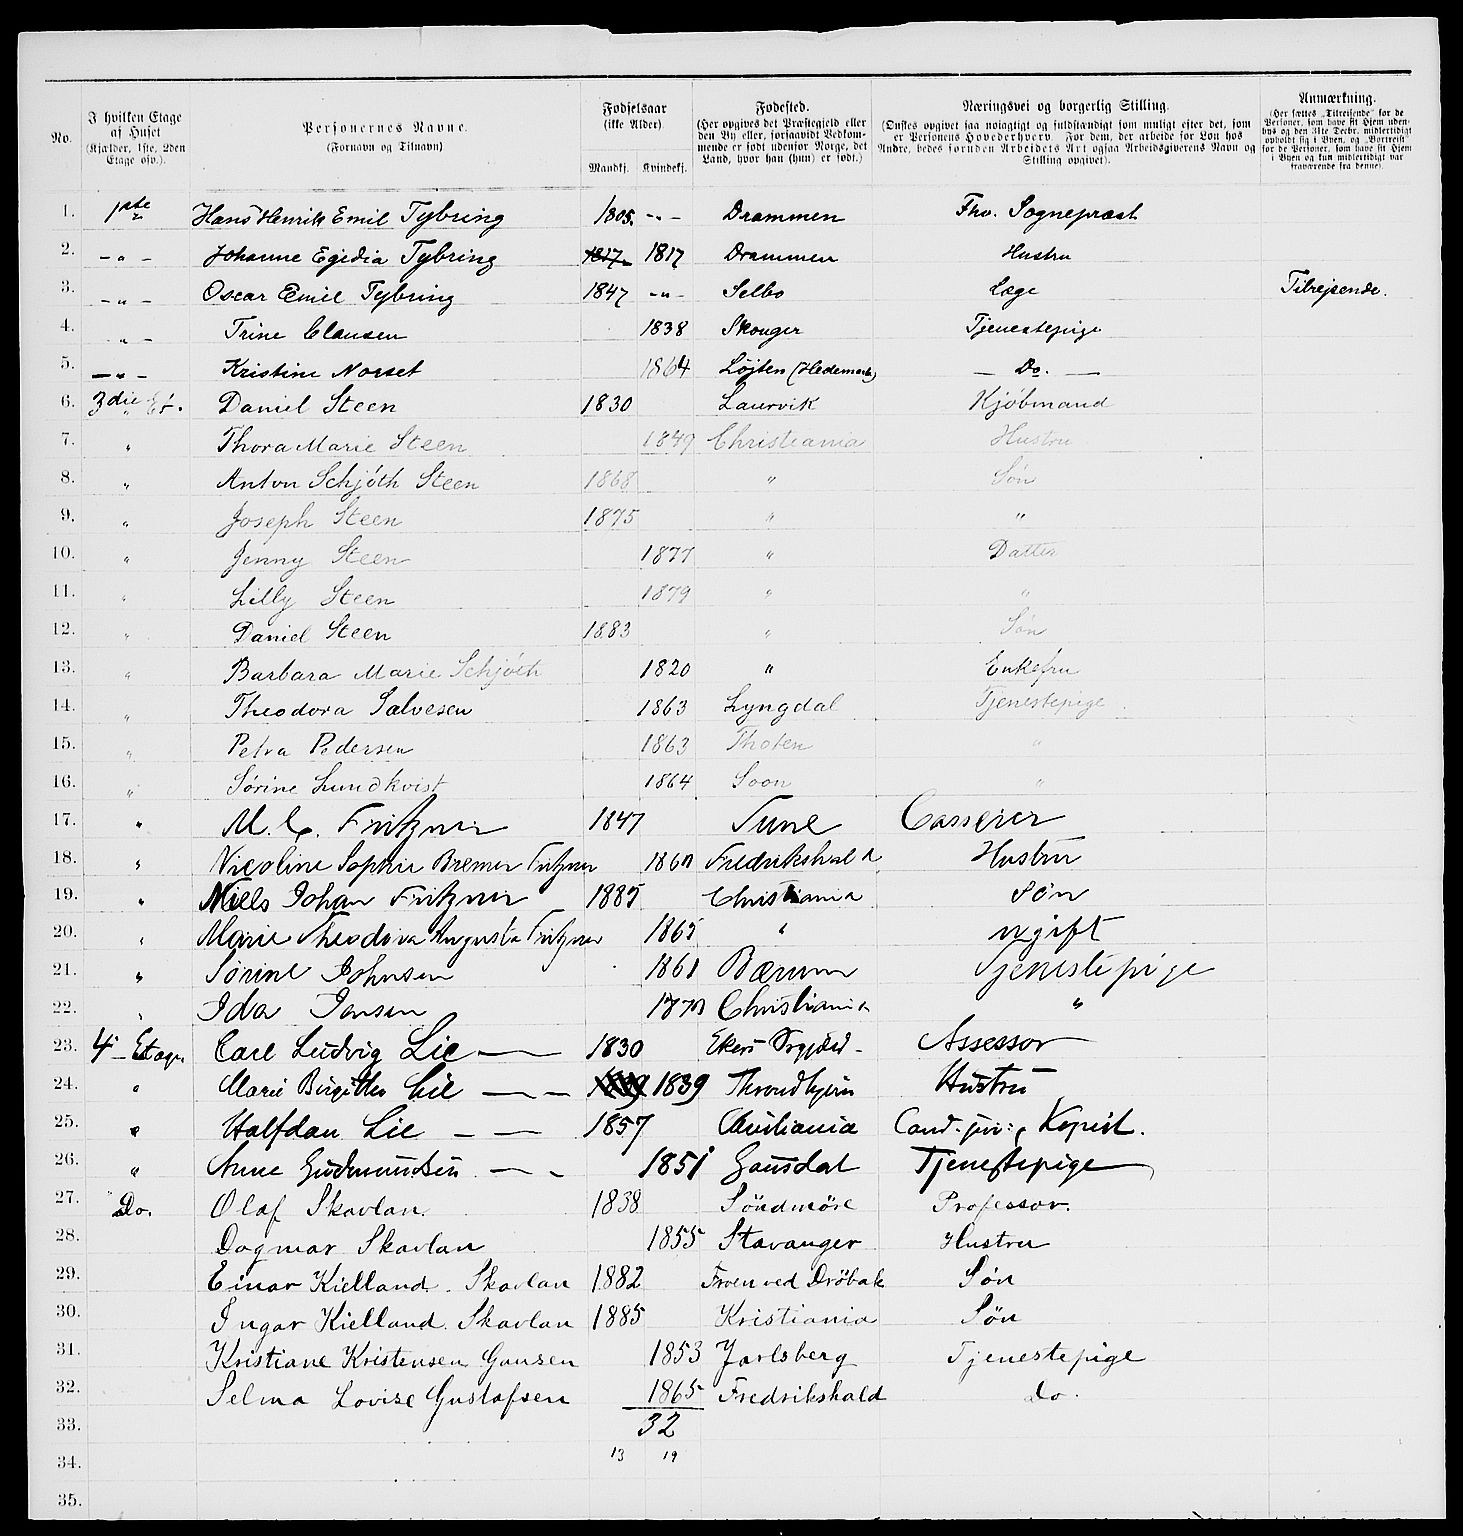 No. I hvilken Etage af Huset (Kjælder, 1ste, 2den Etage osv.). Personernes Navne. (Fornavn og Tilnavn) Fødselsaar (ikke Alder) Mandkj. Kvindekj. Fødested. (Her opgives det Præstegjeld eller den By eller, forsaavidt Vedkommende er født udenfor Norge, det Land, hvor han (hun) er født.) Næringsvei og borgerlig Stilling. (Ønskes opgivet saa nøiagtigt og fuldstændigt som muligt efter det, som er Personens Hovederhverv. For dem, der arbeide for Løn hos Andre, bedes foruden Arbeidets Art ogsaa Arbeidsgiverens Navn og Stilling opgivet). Anmærkning. (Her sættes „Tilreisende" for de Personer, som have sit Hjem udenbys og den 31te Decbr. midlertidigt opholdt sig i Byen, og „Bortreist" for de Personer, som have sit Hjem i Byen og kun midlertidigt var fraværende fra denne).
1. 1ste Hans Henrik Emil Tybring 1805. -"- Drammen Fhv. Sognepræst
2. -"- Johanne Egidia Tybring 1817 1817 Drammen Hustru
3. -"- Oscar Emil Tybring 1847 -"- Selbo Læge Tilrejsende.
4. -"- Trine Clausen 1838 Skouger Tjenestepige
5. -"- Kristine Norset 1864 Løjten (Hedemark) Do.
6. 3die Et. Daniel Steen 1830 Laurvik Kjøbmand
7. " Thora Marie Steen 1849 Christiania Hustru
8. " Anton Schjöth Steen 1868 " Søn
9. " Joseph Steen 1875 " "
10. " Jenny Steen 1877 " Datter
11. " Lilly Steen 1879 " "
12. " Daniel Steen 1883 " Søn
13. " Barbara Marie Schjöth 1820 " Enkefru
14. " Theodora Salvesen 1863 Lyngdal Tjenestepige
15. " Petra Pedersen 1863 Thoten "
16. " Sørine Lundkvist 1864 Soon "
17. " M. C. Fritzner 1847 Tune Casserer
18. " Nicoline Sophie Bremer Fritzner Fredrikshald Hustru
19. " Niels Johan Fritzner 1885 Christiania Søn
20. " Marie Theodora Augusta Fritzner 1865 " ugift
21. " Sørine Johnsen 1861 Bærum Tjenestepige
22. " Ida Jensen Christiania "
23. 4 - Etage Carl Ludvig Lie 1830 Ekers Assessor
24. " Marie Birgitte Lie 1839 Throndhjem Hustru
25. " Halfdan Lie 1857 Christiania Cand. jur., Kopist.
26. " Anne Gudmundsen 1851 Gausdal Tjenestepige
27. Do. Olaf Skavlan 1838 Söndmöre Professor.
28. Dagmar Skavlan 1855 Stavanger Hustru
29. Einar Kielland. Skavlan 1882 Froen ved Dröbak Søn
30. Ingar Kielland. Skavlan 1885 Kristiania Søn
31. Kristiane Kristensen Gausen 1853 Jarlsberg Tjenestepige
32. Selma Lovise Gustafsen 1865 Fredrikshald do.
33. 32
34. 13 19
35.